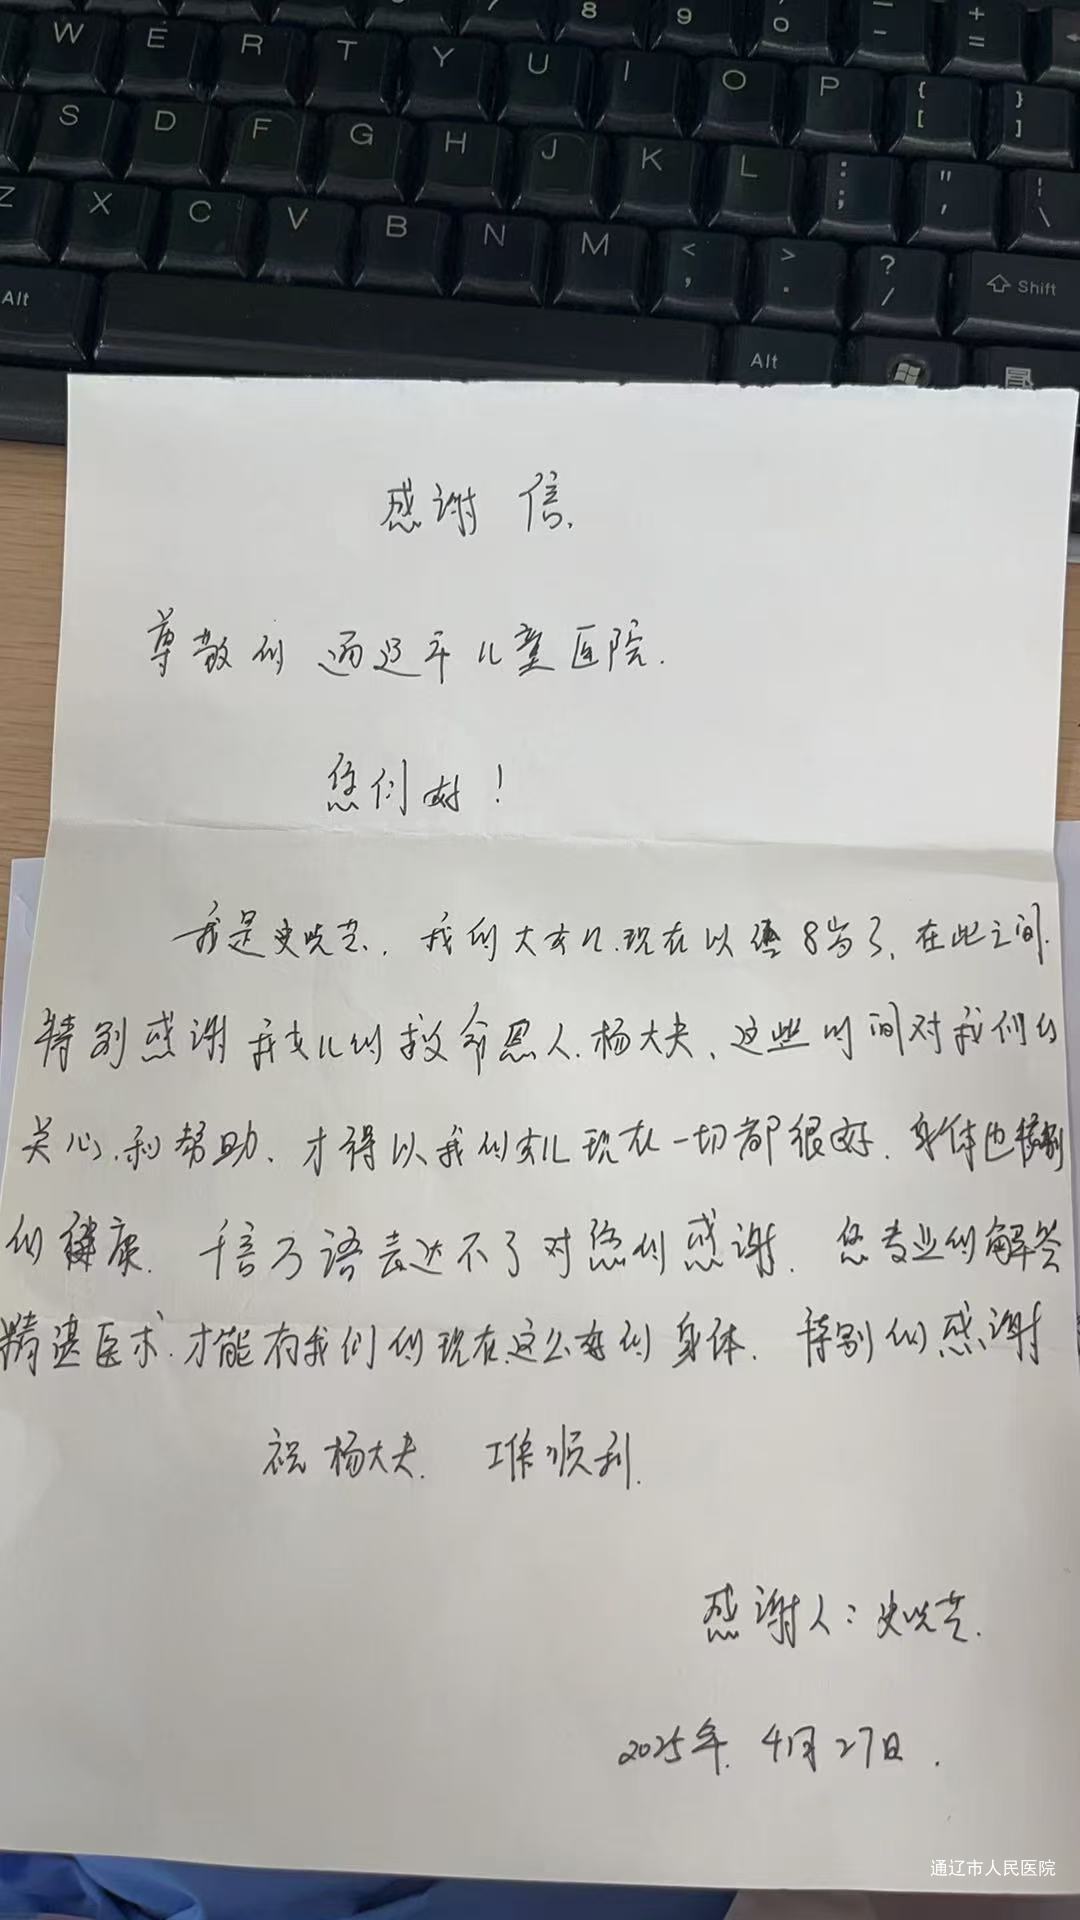 7 8 9 ) 0 — - + =
W E R T Y U I O P { [ } ]
S D F G H J K L : ; " ' | \
Z X C V B N M < , > . ? / Shift
Alt Alt
感谢信.
尊敬的 通辽市儿童医院.
您们好！
我是史晓芸. 我的大女儿.现在以经8岁了、在此之间.
特别感谢我女儿的救命恩人.杨大夫、这些时间对我们的
关心.和帮助、才得以我的女儿现在一切都很好. 身体也特别
的健康. 千言万语表达不了对您的感谢. 您专业的解答
精湛医术.才能有我们的现在.这么好的身体. 特别的感谢
祝杨大夫. 工作顺利.
感谢人：史晓芸.
2025年.4月27日.
通辽市人民医院